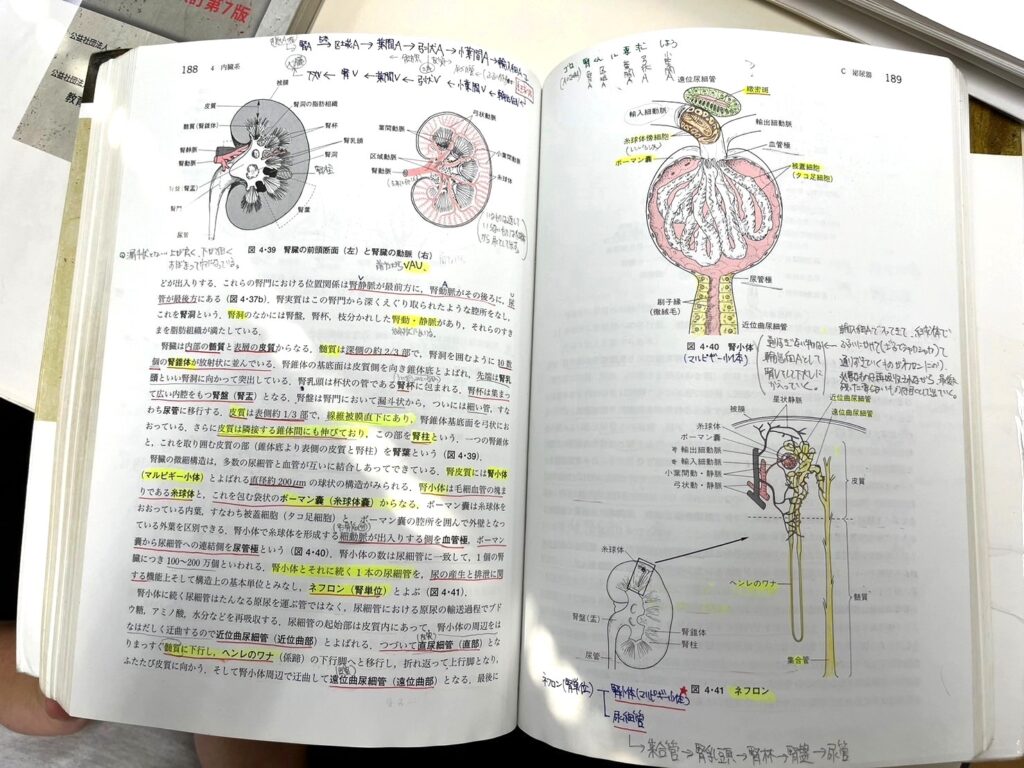 訂第7版
公益社団法人
公益社団法人
教育
188 4 内臓系
腎A → 区域A → 葉間A → 弓状A → 小葉間A → 輸入細A
下大V ← 腎V ← 葉間V ← 弓状V ← 小葉間V ←
被膜
皮質
腎洞の脂肪組織
髄質(腎錐体)
腎杯
腎乳頭
腎静脈
腎動脈
腎洞
腎柱
腎盤(腎盂)
腎門
腎葉
尿管
弓状動脈
葉間動脈
区域動脈
腎動脈
小葉間動脈
糸球体
図 4・39 腎臓の前頭断面(左)と腎臓の動脈(右)
VAU
どが出入りする.これらの腎門における位置関係は腎静脈が最前方に,腎動脈がその後ろに,尿
管が最後方にある(図 4・37b).腎実質はこの腎門から深くえぐり取られたような腔所をなし,
これを腎洞という.腎洞のなかには腎盤,腎杯,枝分かれした腎動・静脈があり,それらのすき
まを脂肪組織が満たしている.
腎臓は内部の髄質と表層の皮質からなる.髄質は深側の約 2/3 部で,腎洞を囲むように 10 数
個の腎錐体が放射状に並んでいる.腎錐体の基底面は皮質側を向き錐体底とよばれ,先端は腎乳
頭といい腎洞に向かって突出している.腎乳頭は杯状の管である腎杯に包まれる.腎杯は集まっ
て広い内腔をもつ腎盤(腎盂)となる.腎盤は腎門において漏斗状から,ついには細い管,すな
わち尿管に移行する.皮質は表側約 1/3 部で,線維被膜直下にあり,腎錐体基底面を弓状にお
おっている.さらに皮質は隣接する錐体間にも伸びており,この部を腎柱という.一つの腎錐体
と,これを取り囲む皮質の部(錐体底より表側の皮質と腎柱)を腎葉という(図 4・39).
腎臓の微細構造は,多数の尿細管と血管が互いに結合しあってできている.腎皮質には腎小体
(マルピギー小体)とよばれる直径約 200 μm の球状の構造がみられる.腎小体は毛細血管の塊ま
りである糸球体と,これを包む袋状のボーマン嚢(糸球体嚢)からなる.ボーマン嚢は糸球体を
おおっている内葉,すなわち被蓋細胞(タコ足細胞)と,ボーマン嚢の腔所を囲んで外壁となっ
ている外葉を区別できる.腎小体で糸球体を形成する細動脈が出入りする側を血管極,ボーマン
嚢から尿細管への連結側を尿管極という(図 4・40).腎小体の数は尿細管に一致して,1 個の腎
臓につき 100〜200 万個といわれる.腎小体とそれに続く 1 本の尿細管を,尿の産生と排泄に関
する機能上そして構造上の基本単位とみなし,ネフロン(腎単位)とよぶ(図 4・41).
腎小体に続く尿細管はたんなる原尿を運ぶ管ではなく,尿細管における原尿の輸送過程でブド
ウ糖,アミノ酸,水分などを再吸収する.尿細管の起始部は皮質内にあって,腎小体の周辺をは
なはだしく迂曲するので近位曲尿細管(近位曲部)とよばれる.つづいて直尿細管(直部)とな
りまっすぐ髄質に下行し,ヘンレのワナ(係蹄)の下行脚へと移行し,折れ返って上行脚となり,
ふたたび皮質に向かう.そして腎小体周辺で迂曲して遠位曲尿細管(遠位曲部)となる.最後に
C 泌尿器 189
遠位尿細管
緻密斑
輸入細動脈
輸出細動脈
糸球体傍細胞
血管極
ボーマン嚢
被蓋細胞
(タコ足細胞)
尿管極
刷子縁
(微絨毛)
近位曲尿細管
図 4・40 腎小体
(マルピギー小体)
星状静脈
近位曲尿細管
遠位曲尿細管
被膜
糸球体
ボーマン嚢
輸出細動脈
輸入細動脈
小葉間動・静脈
弓状動・静脈
皮質
糸球体
ヘンレのワナ
髄質
腎盤(盂)
腎錐体
腎柱
尿管
集合管
図 4・41 ネフロン
ネフロン(腎単位)
腎小体(マルピギー小体)
尿細管
集合管 → 腎乳頭 → 腎杯 → 腎盤 → 尿管